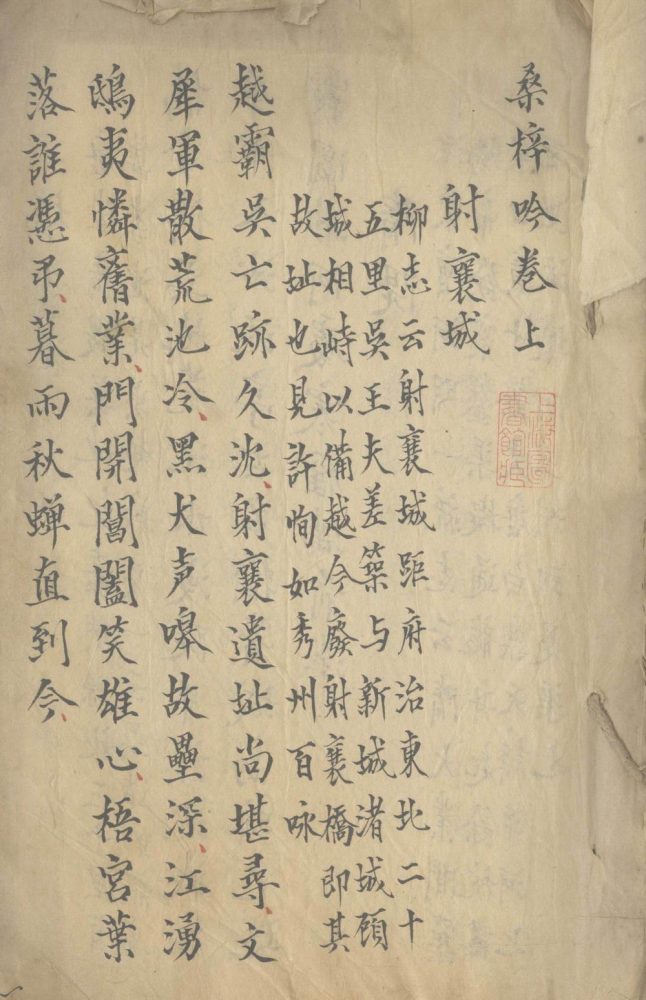 桑梓吟卷上
射襄城
柳志云射襄城距府治東北二十
五里吳王夫差築与新城渚城頋
城相峙以備越今廢射襄橋即其
故址也見許恂如秀州百咏
越霸吳亡跡久沈射襄遺址尚堪尋文
犀軍散荒池冷黑犬声嘷故壘深江湧
鴟夷憐舊業門開閶闔笑雄心梧宮葉
落誰憑弔暮雨秋蝉直到今
上海圖
書館藏